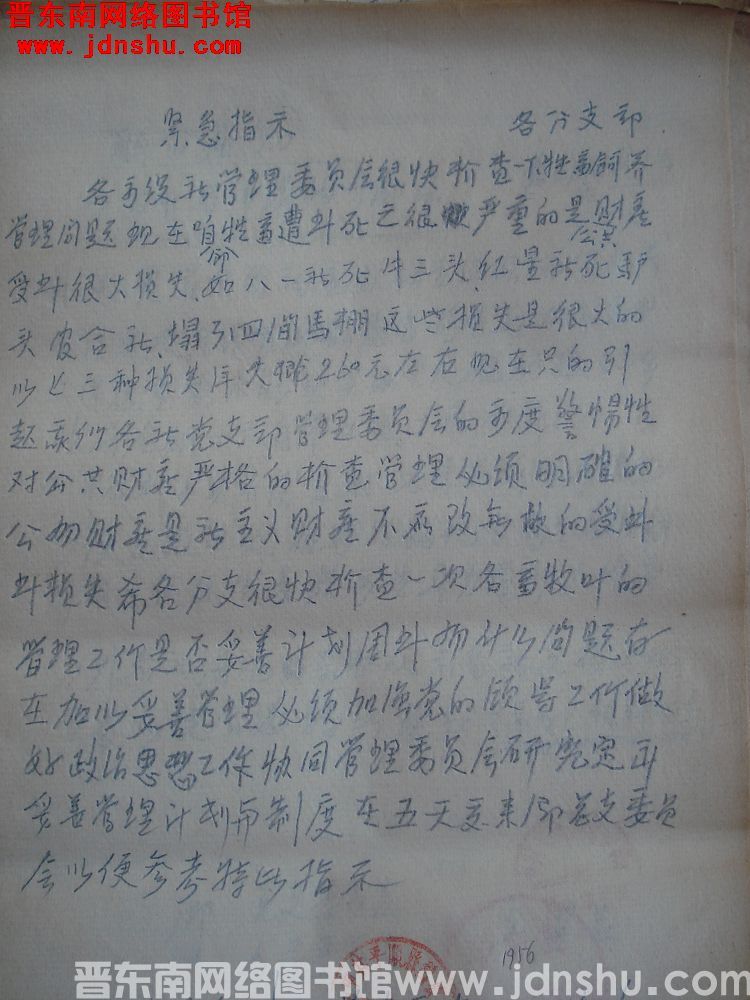 晋东南网络图书馆
www.jdnshu.com
紧急指示 各分支部
各 社管理委员会很快检查一下牲畜饲养
管理问题现在咱牲畜遭 死亡很严重的是公共财产
受 很大损失如八一社死牛三头红星社死驴
头 合社塌了四间马棚这些损失是很大的
以上三种损失 260元左右现在只的引
起我们各社党支部管理委员会的 度警惕性
对公共财产严格的检查管理必须明确的
公 财产是社主义财产不 受
损失希各分支很快检查一次各畜牧 的
管理工作是否妥善计划周 什么问题存
在加以妥善管理必须加强党的领导工作做
好政治思想工作协同管理委员会研究定出
妥善管理计划与制度在五天 来 总支委员
会以便参考特此指示
1956
晋东南网络图书馆 www.jdnshu.com